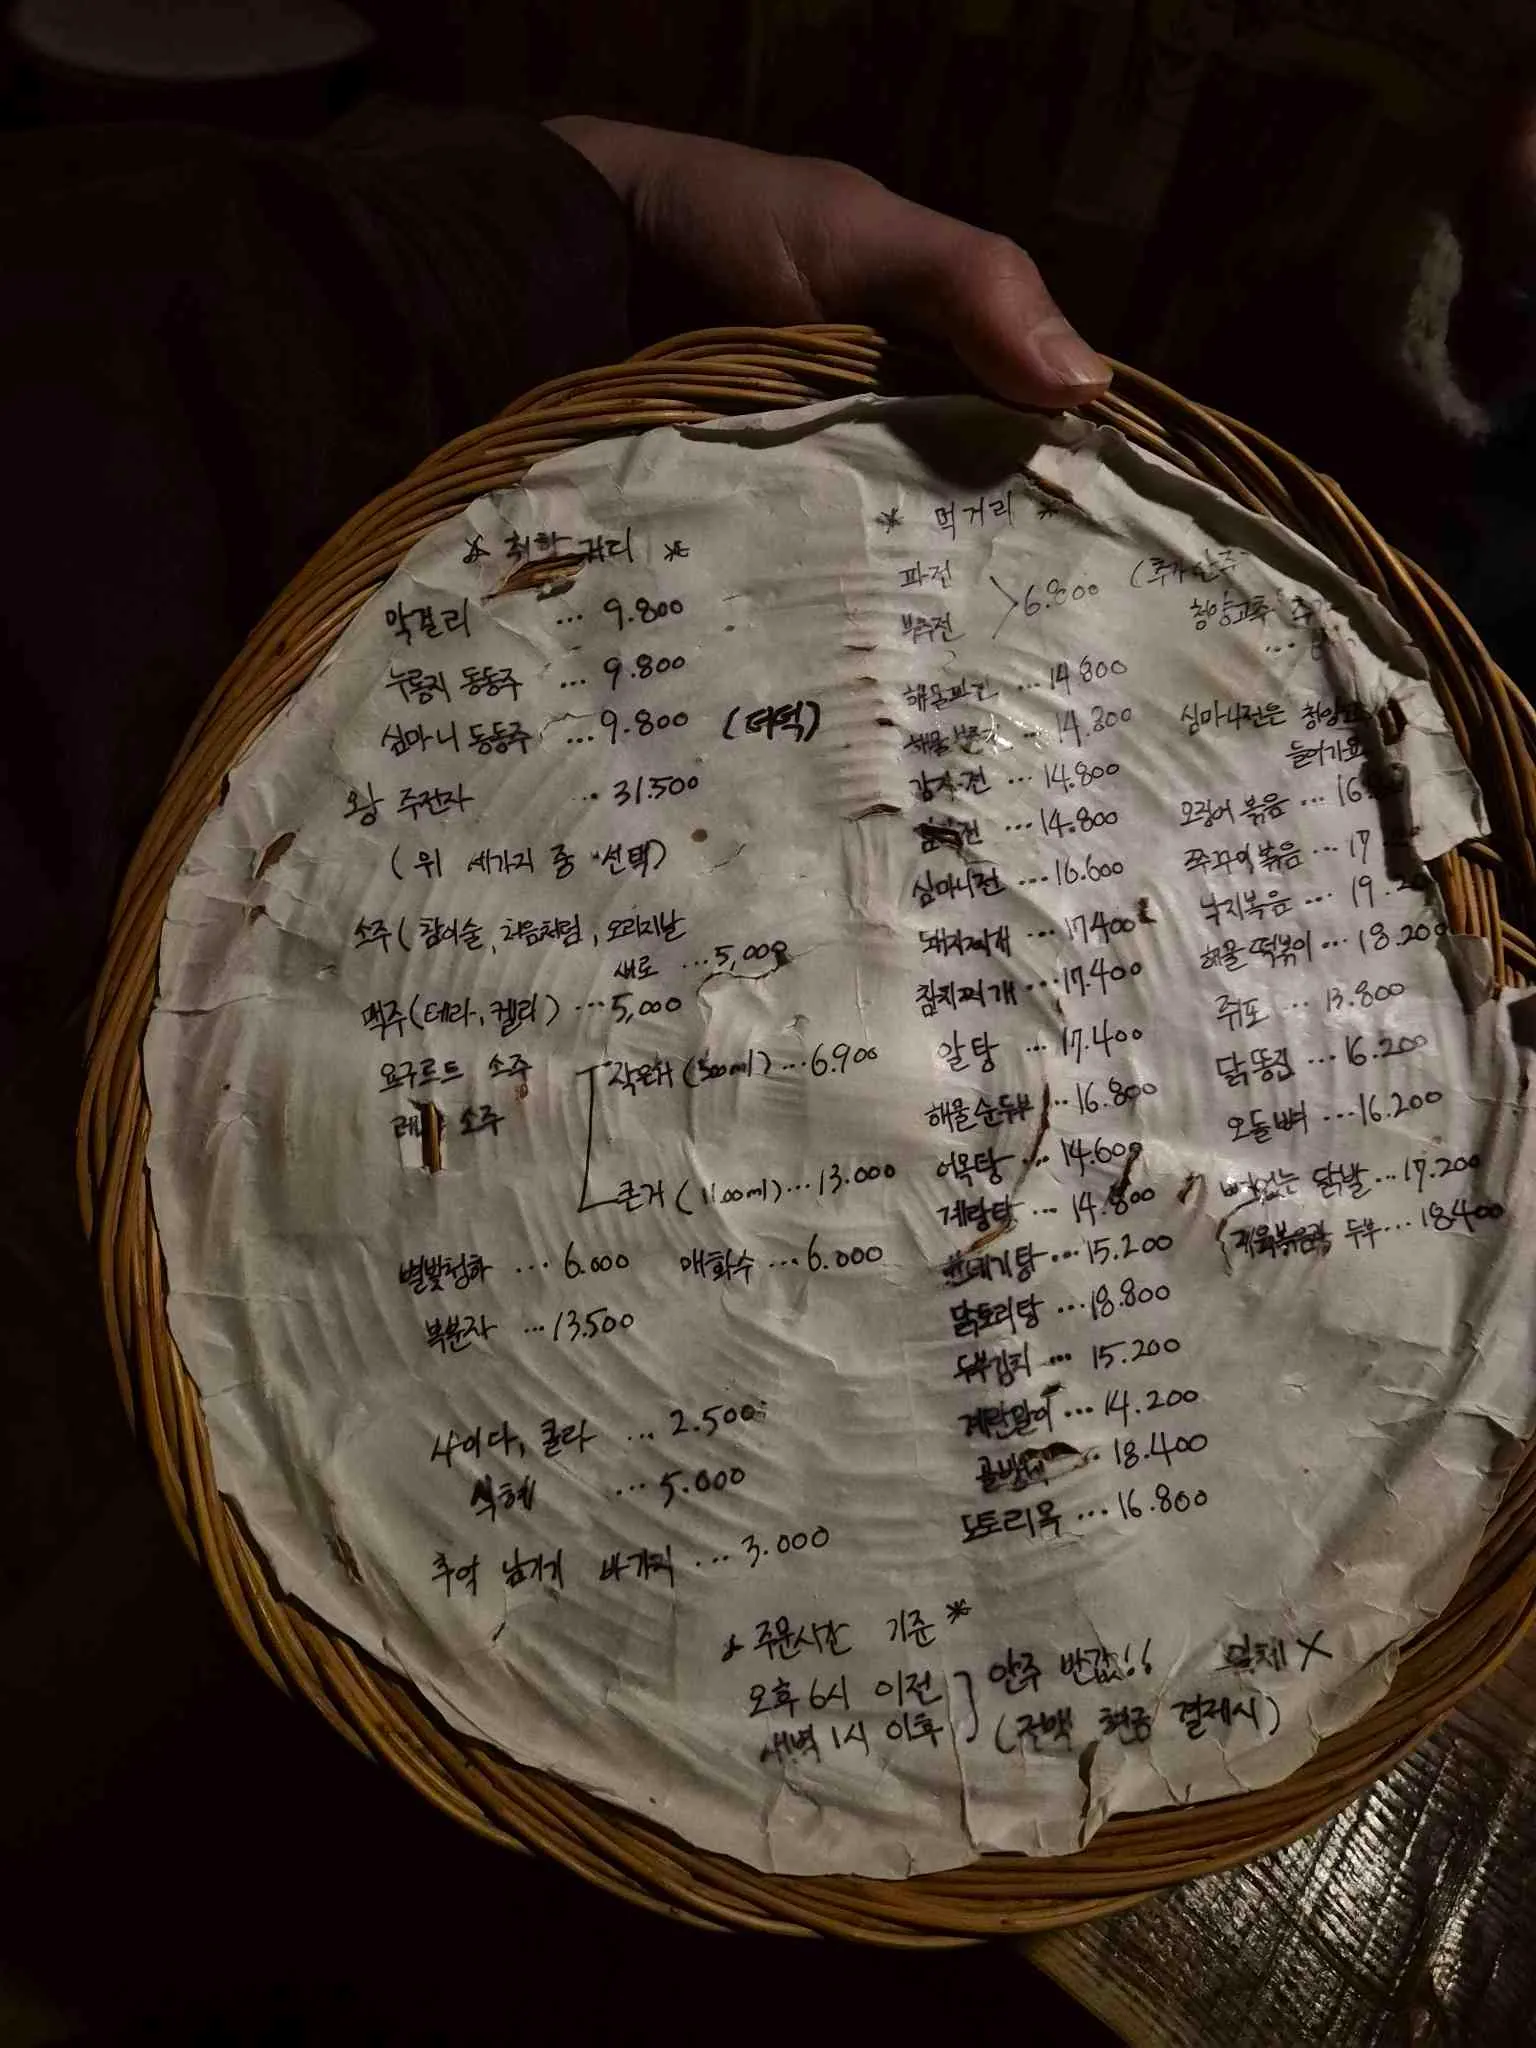 * 취할거리 *
막걸리 ... 9.800
누룽지 동동주 ... 9.800
심마니 동동주 ... 9.800 (더덕)
왕 주전자 ... 31.500
(위 세가지 중 선택)
소주 (참이슬, 처음처럼, 오리지날
새로 ... 5,000
맥주 (테라, 켈리) ... 5,000
요구르트 소주
소주
작은거 (500ml) ... 6.900
큰거 (1100ml) ... 13.000
별빛청하 ... 6.000 매화수 ... 6.000
복분자 ... 13.500
사이다, 콜라 ... 2.500
식혜 ... 5.000
추억 남기기 바가지 ... 3.000
* 먹거리 *
파전
부추전
6.800 (추가안주
청양고추
해물파전 ... 14.800
해물부추전 ... 14.800
감자전 ... 14.800
전 ... 14.800
심마니전 ... 16.600
돼지찌개 ... 17.400
참치찌개 ... 17.400
알탕 ... 17.400
해물순두부 ... 16.800
어묵탕 ... 14.600
계란탕 ... 14.800
번데기탕 ... 15.200
닭도리탕 ... 18.800
두부김치 ... 15.200
계란말이 ... 14.200
골뱅이 ... 18.400
도토리묵 ... 16.800
심마니전은 청양고
들어가요
오징어 볶음 ... 16
쭈꾸미 볶음 ... 17
낙지볶음 ... 19.2
해물 떡볶이 ... 18.200
쥐포 ... 13.800
닭똥집 ... 16.200
오돌뼈 ... 16.200
뼈없는 닭발 ... 17.200
제육볶음과 두부 ... 18.400
* 주문시간 기준 *
오후 6시 이전
새벽 1시 이후
안주 반값!! 이체 X
(전액 현금 결제시)